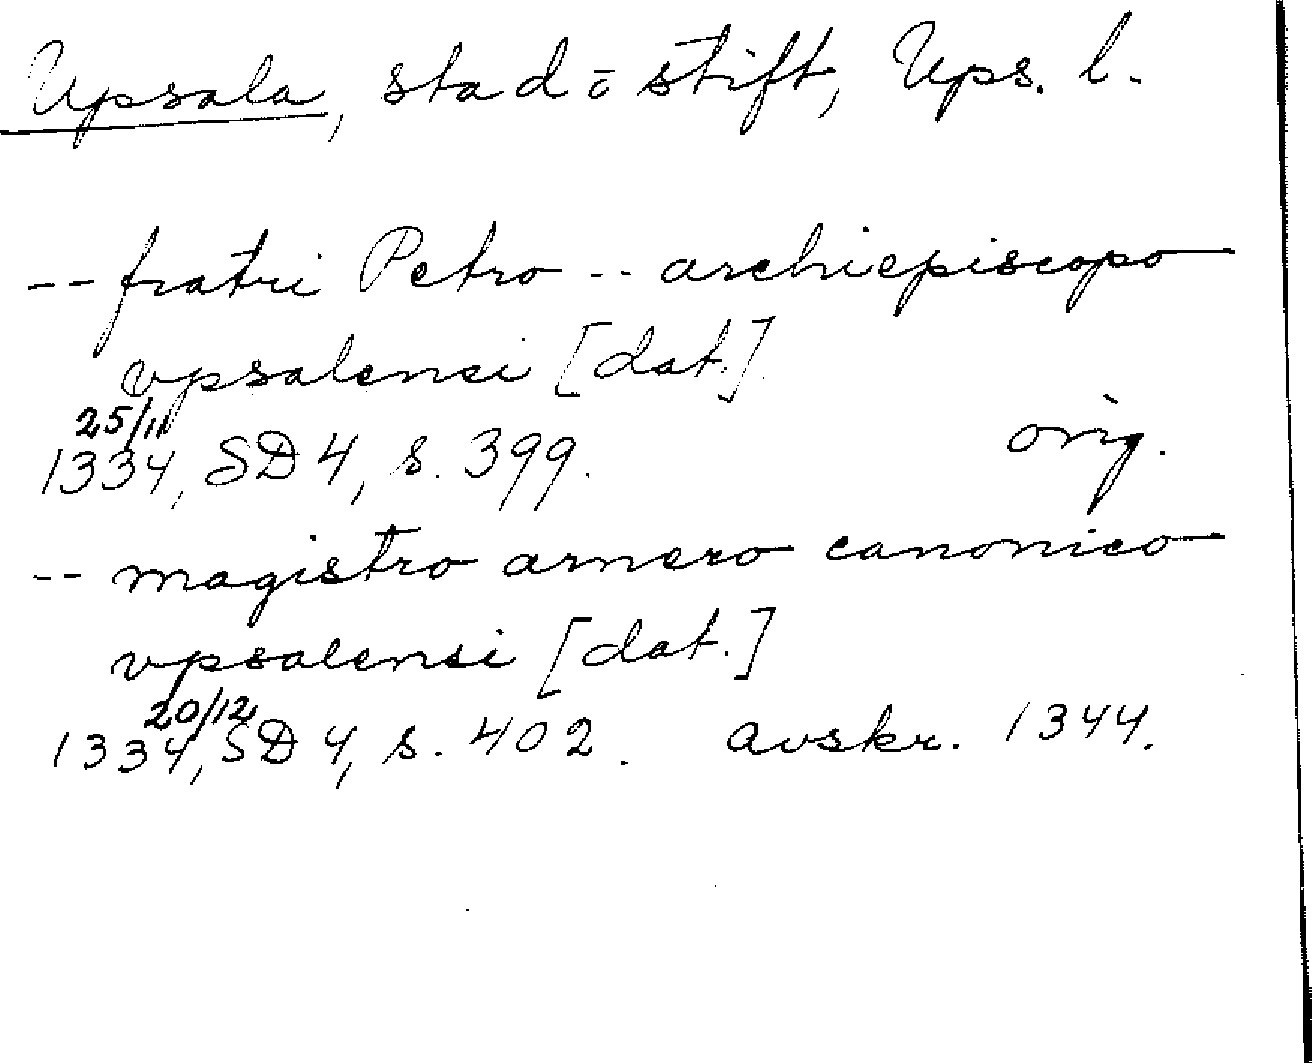 Upsala, stad o. stift, Ups. l.
-- fratri Petro -- archiepiscopo
vpsalensi [dat.]
25/11
1334, SD 4, s. 399. orig.
-- magistro arnero canonico
vpsalensi [dat.]
20/12
1334, SD 4, s. 402. avskr. 1344.